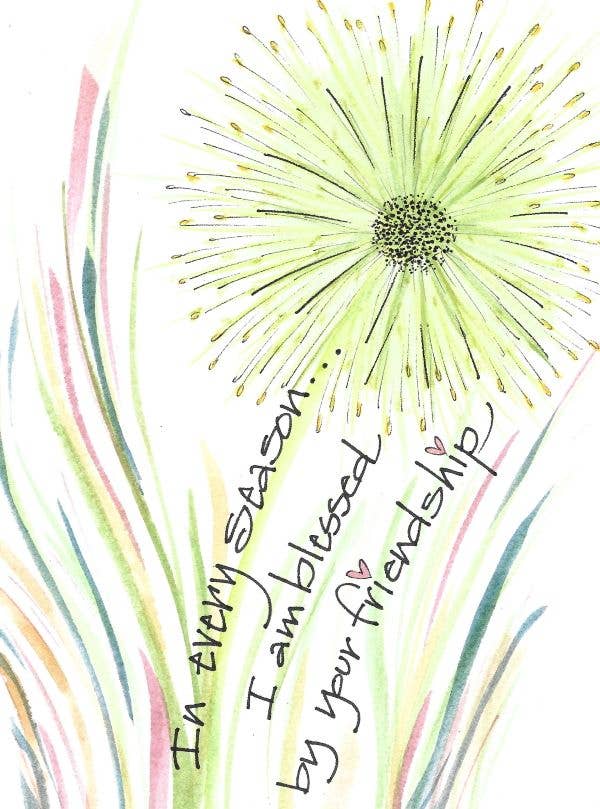 In every season...
I am blessed
by your friendship